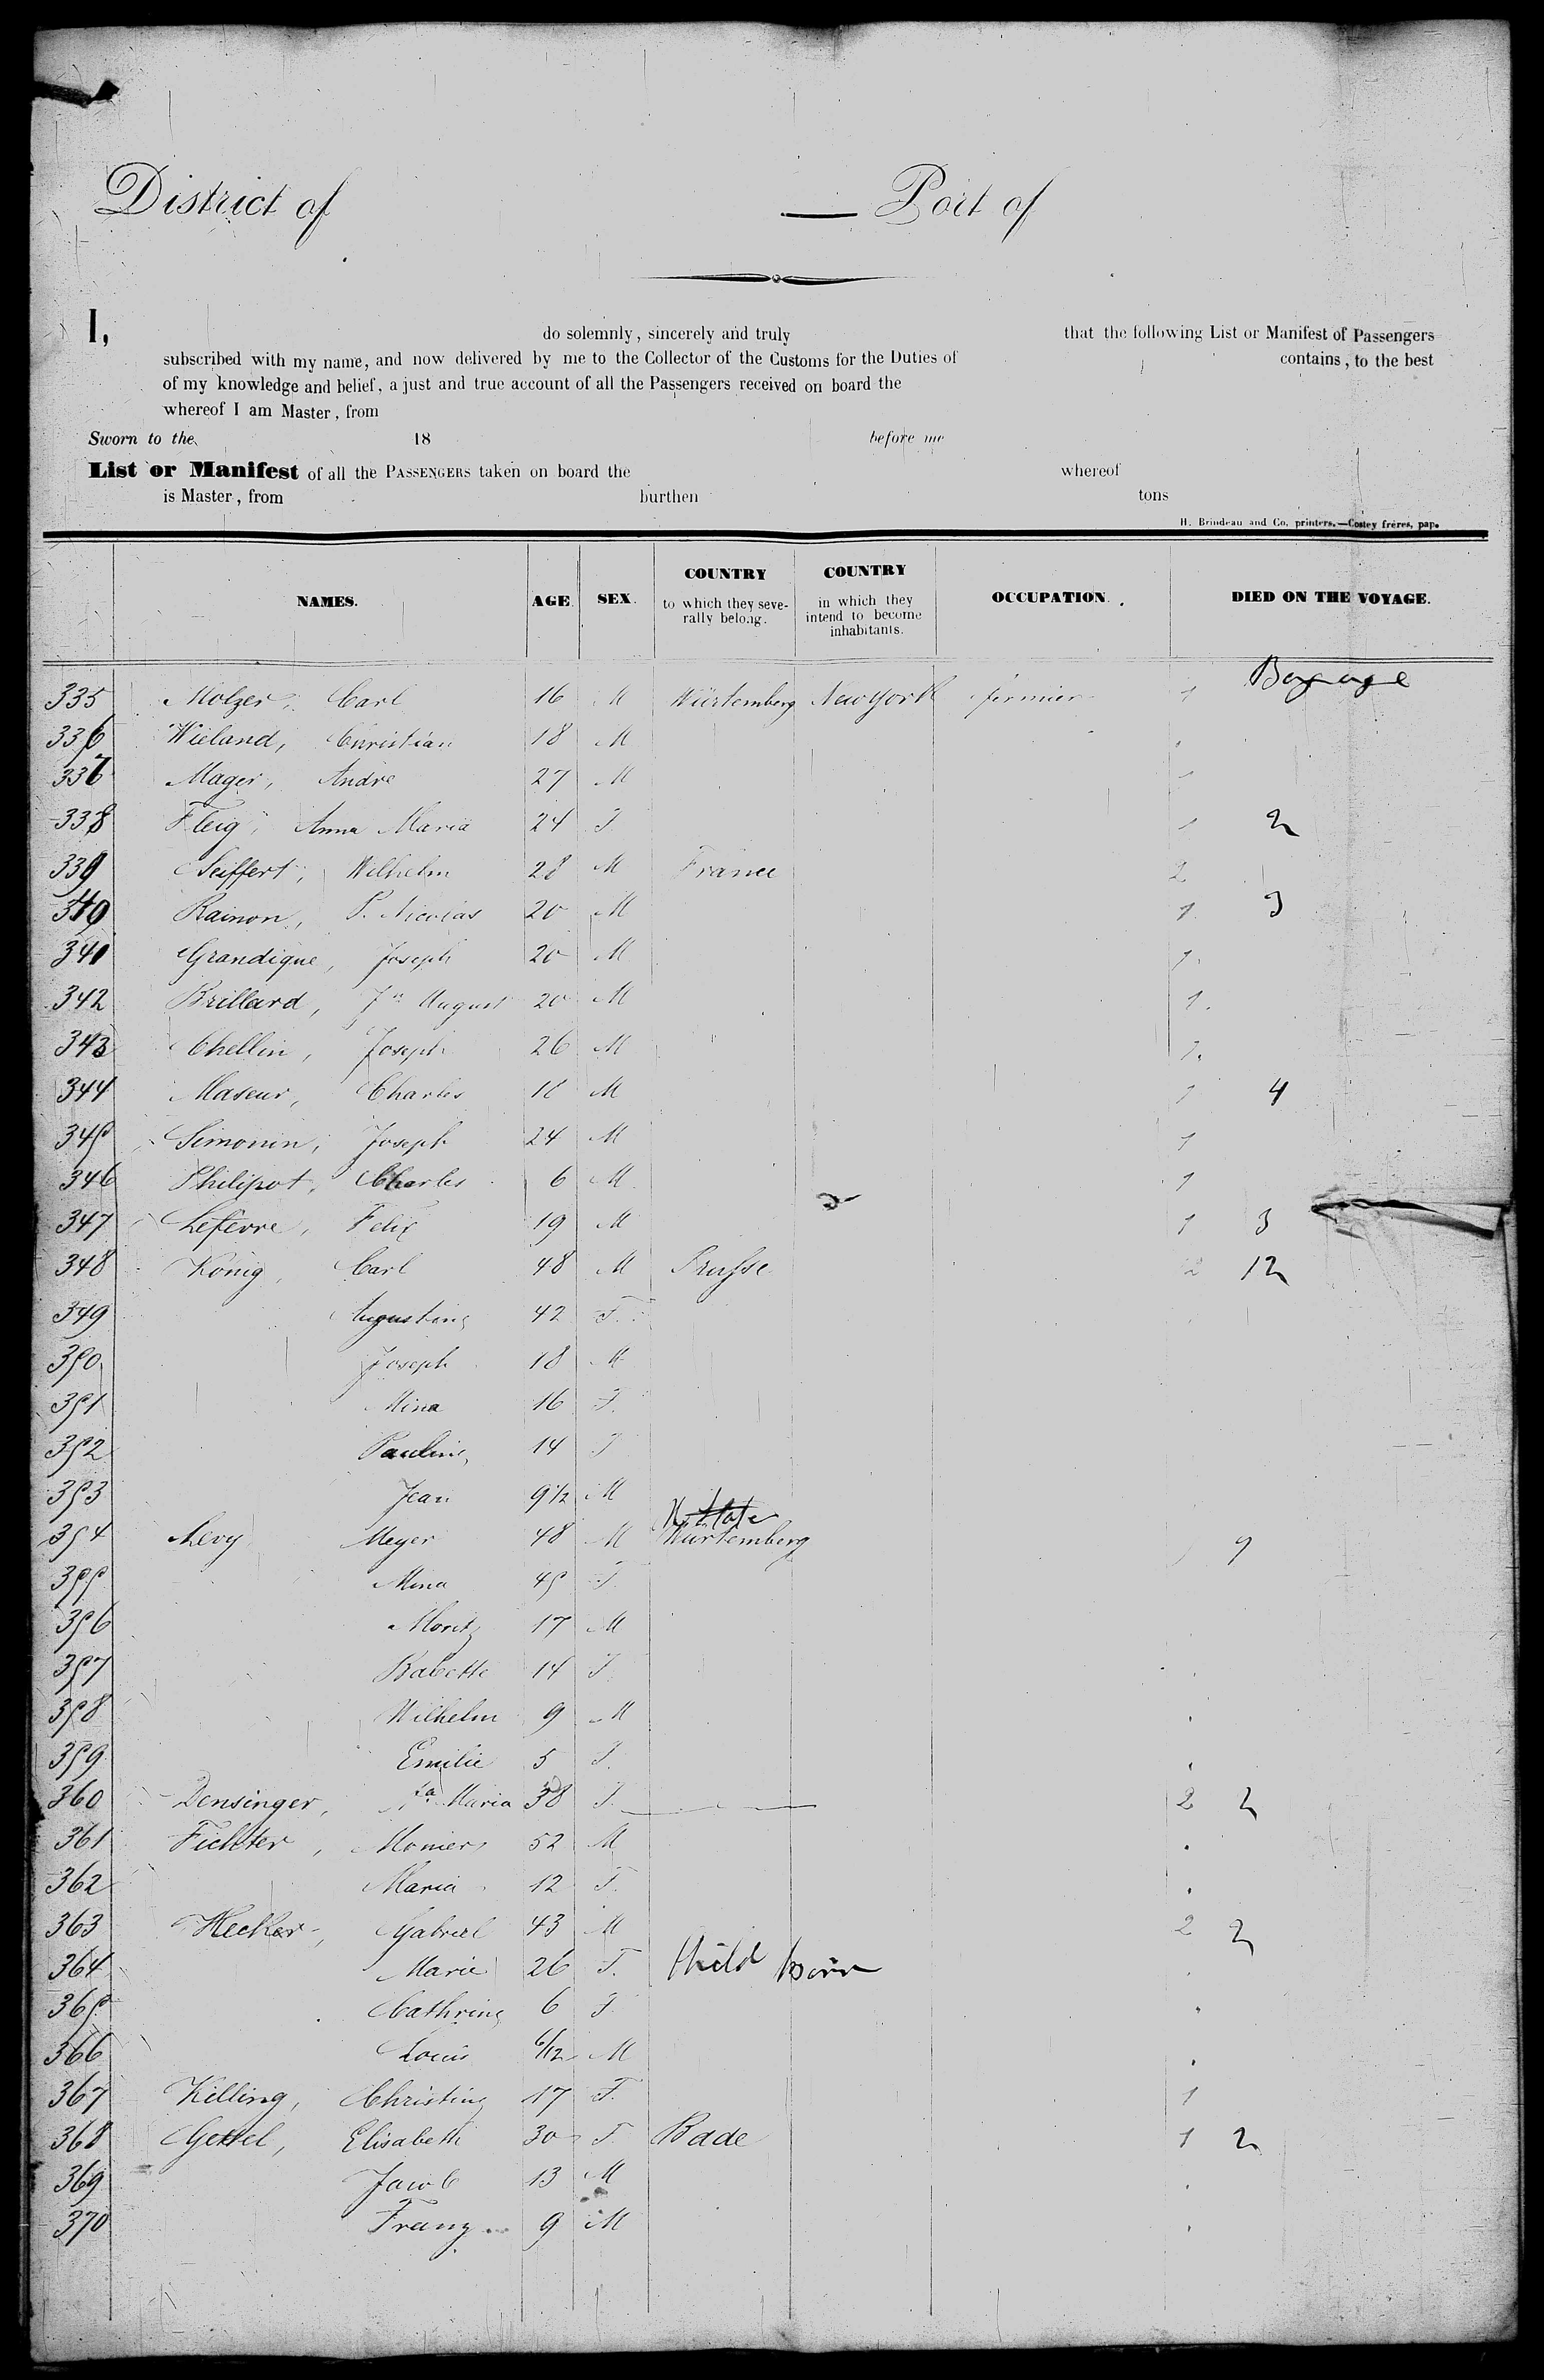 District of — Port of
I, do solemnly, sincerely and truly that the following List or Manifest of Passengers
subscribed with my name, and now delivered by me to the Collector of the Customs for the Duties of contains, to the best
of my knowledge and belief, a just and true account of all the Passengers received on board the
whereof I am Master, from
Sworn to the 18 before me
List or Manifest of all the PASSENGERS taken on board the whereof
is Master, from burthen tons
H. Brindeau and Co, printers.—Costey fréres, pap.
NAMES. AGE. SEX. COUNTRY to which they seve-rally belong. COUNTRY in which they intend to become inhabitants. OCCUPATION. DIED ON THE VOYAGE.
Bagage
335 Molzer, Carl 16 M Würtemberg New York fermier 1
336 Wieland, Christian 18 M
337 Mager, Andre 27 M 1
338 Fleig, Anna Maria 24 F 1 2
339 Seiffert, Wilhelm 28 M France 2
340 Rainon, P. Nicolas 20 M 1 3
341 Grandique, Joseph 20 M 1
342 Brillard, Jn August 20 M 1
343 Chellin, Joseph 26 M 1
344 Maseur, Charles 18 M 1 4
345 Simonin, Joseph 24 M 1
346 Philipot, Charles 6 M 1
347 Lefevre, Felix 19 M 1 3
348 König, Carl 48 M Prusse 2 12
349 Augustine 42 F.
350 Joseph 18 M
351 Mina 16 F.
352 Pauline 14 F
353 Jean 9 1/2 M
354 Levy Meyer 48 M Würtemberg 9
355 Mina 45 F.
356 Moritz 17 M
357 Babette 14 F.
358 Wilhelm 9 M
359 Emilie 5 F.
360 Densinger, Maria 38 F. 2 2
361 Fichter, Monier 52 M
362 Maria 12 F.
363 Hecker, Gabriel 43 M 2 2
364 Marie 26 F. Child born
365 Cathrine 6 F
366 Louis 6/12 M
367 Killing, Christine 17 F. 1
368 Gettel, Elisabeth 30 F. Bade 1 2
369 Jacob 13 M
370 Franz 9 M